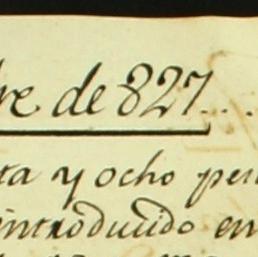 re de 827...
ta y ocho pes
introducido en